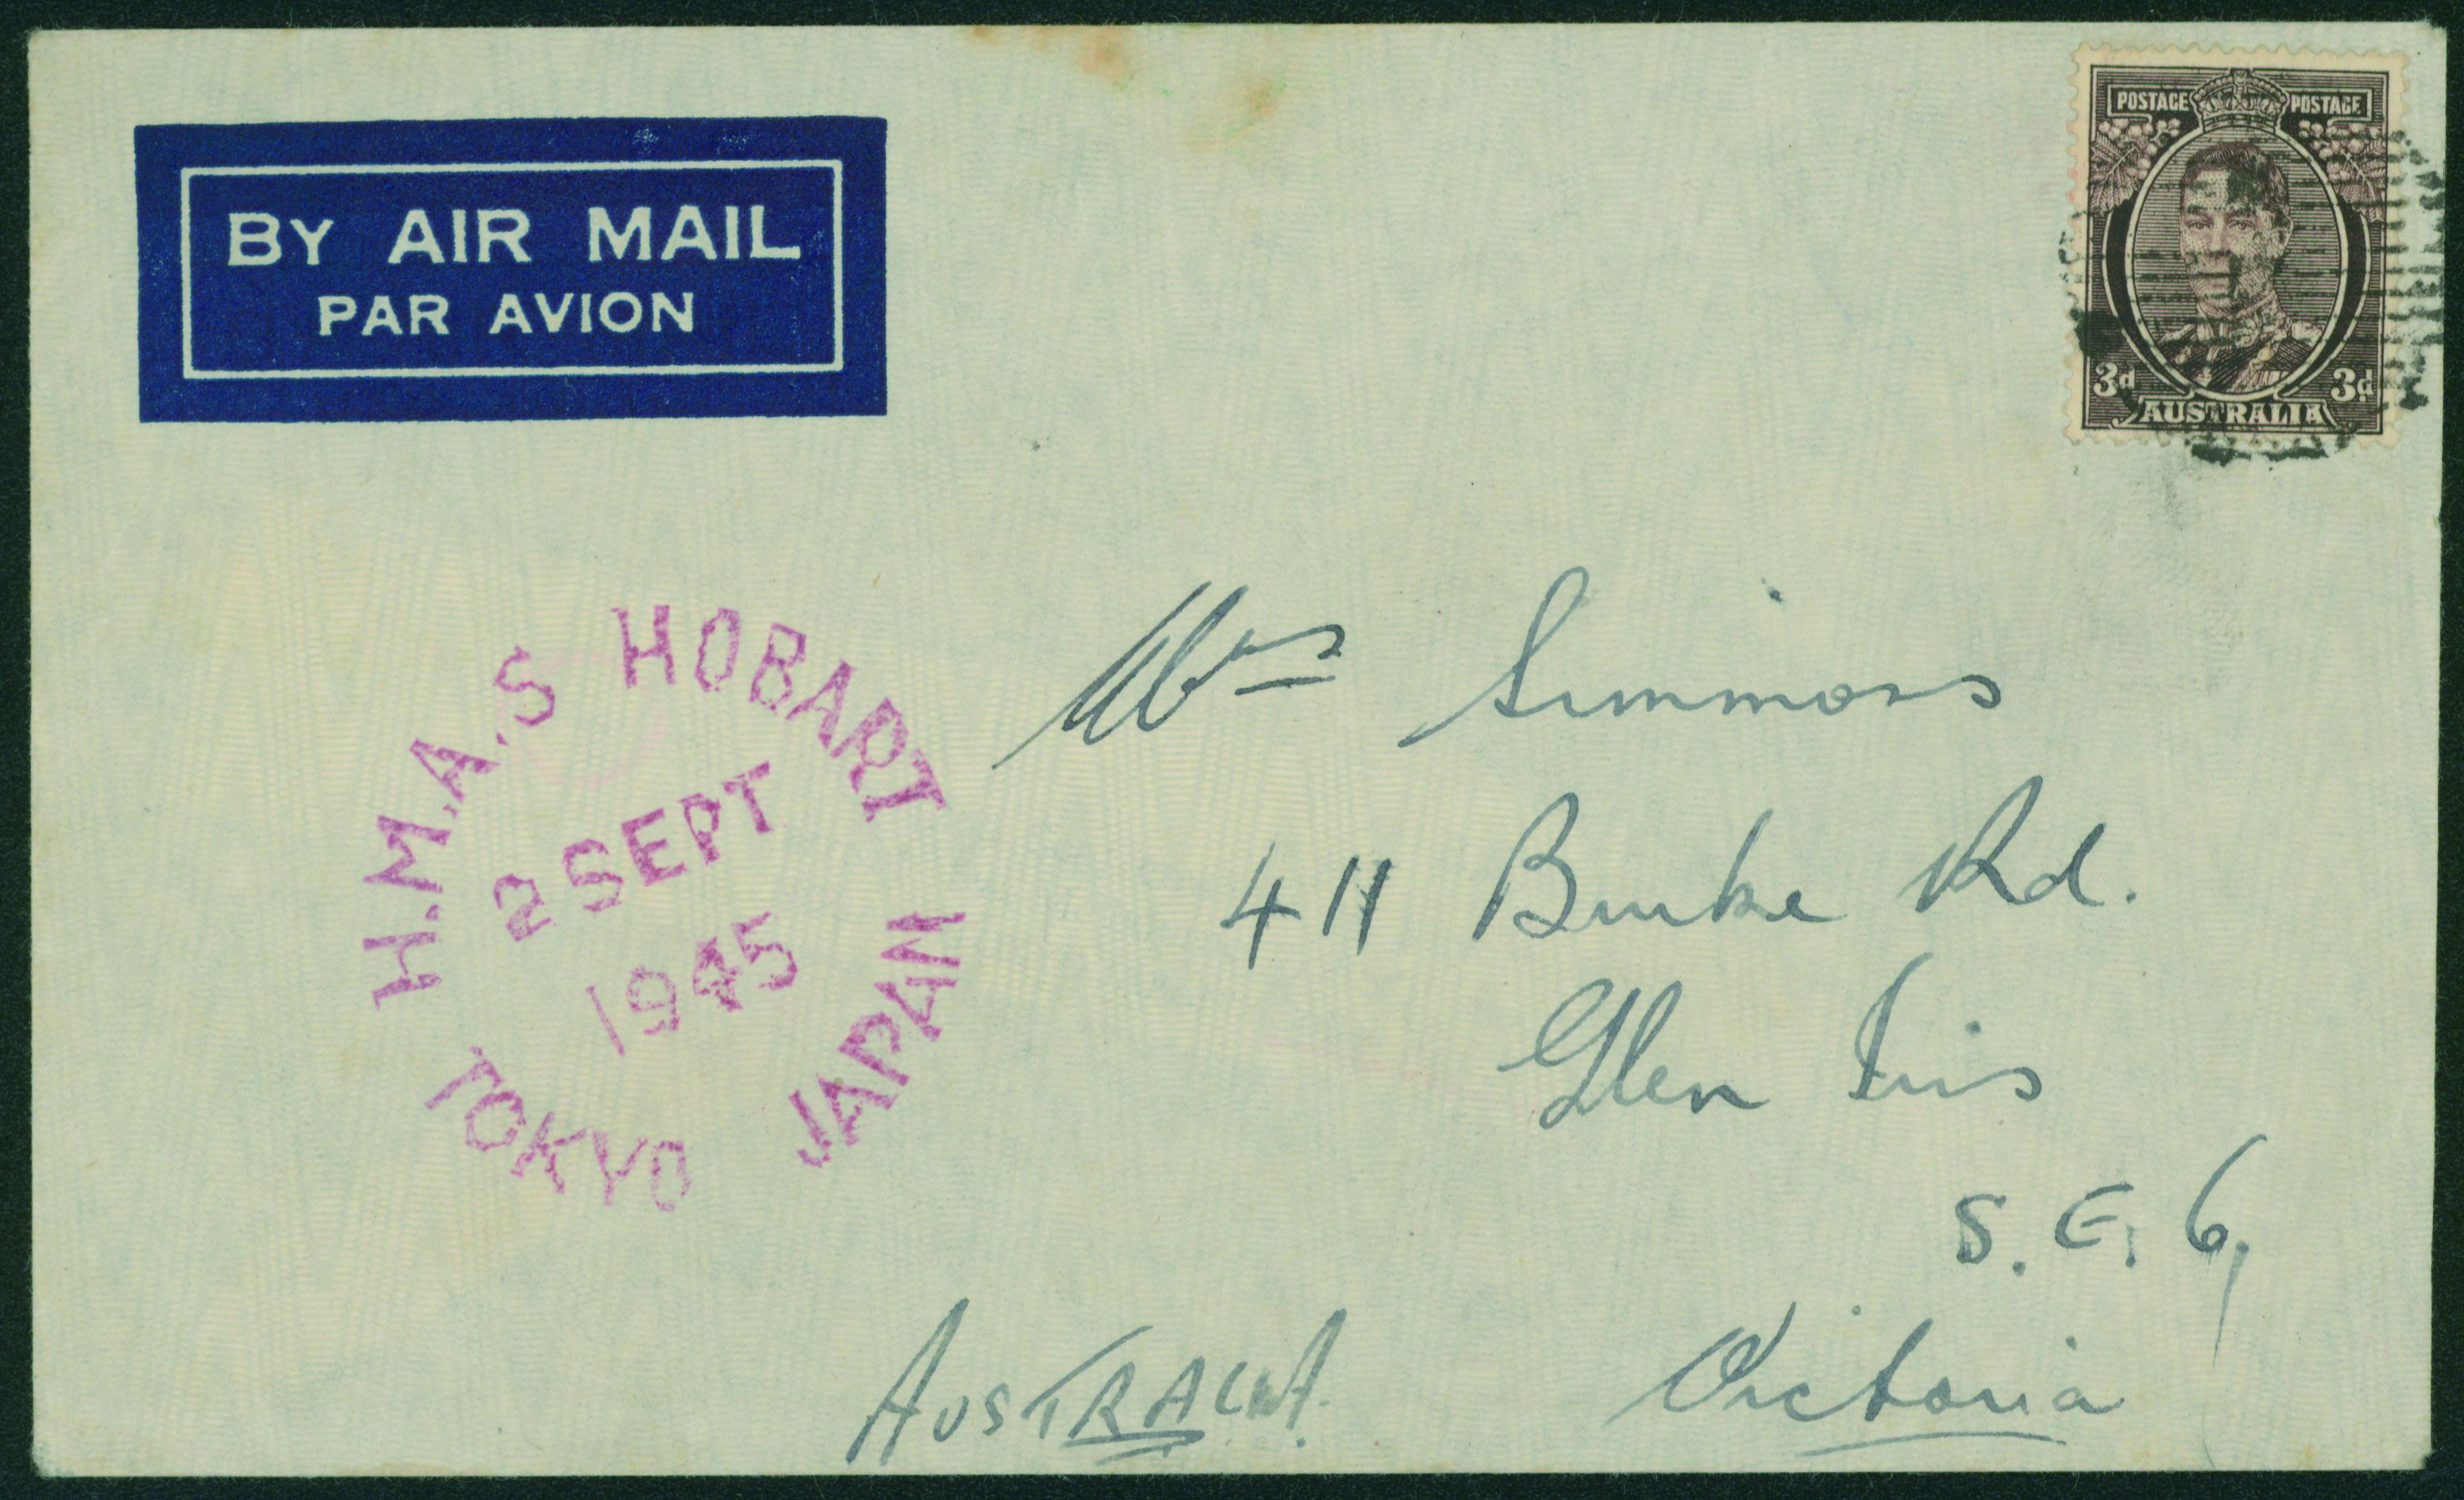 BY AIR MAIL
PAR AVION
POSTAGE POSTAGE
3d 3d
AUSTRALIA
H.M.A.S HOBART
2 SEPT
1945
TOKYO JAPAN
Mrs Simmons
411 Burke Rd.
Glen Iris
S.E. 6,
Victoria
AUSTRALIA.